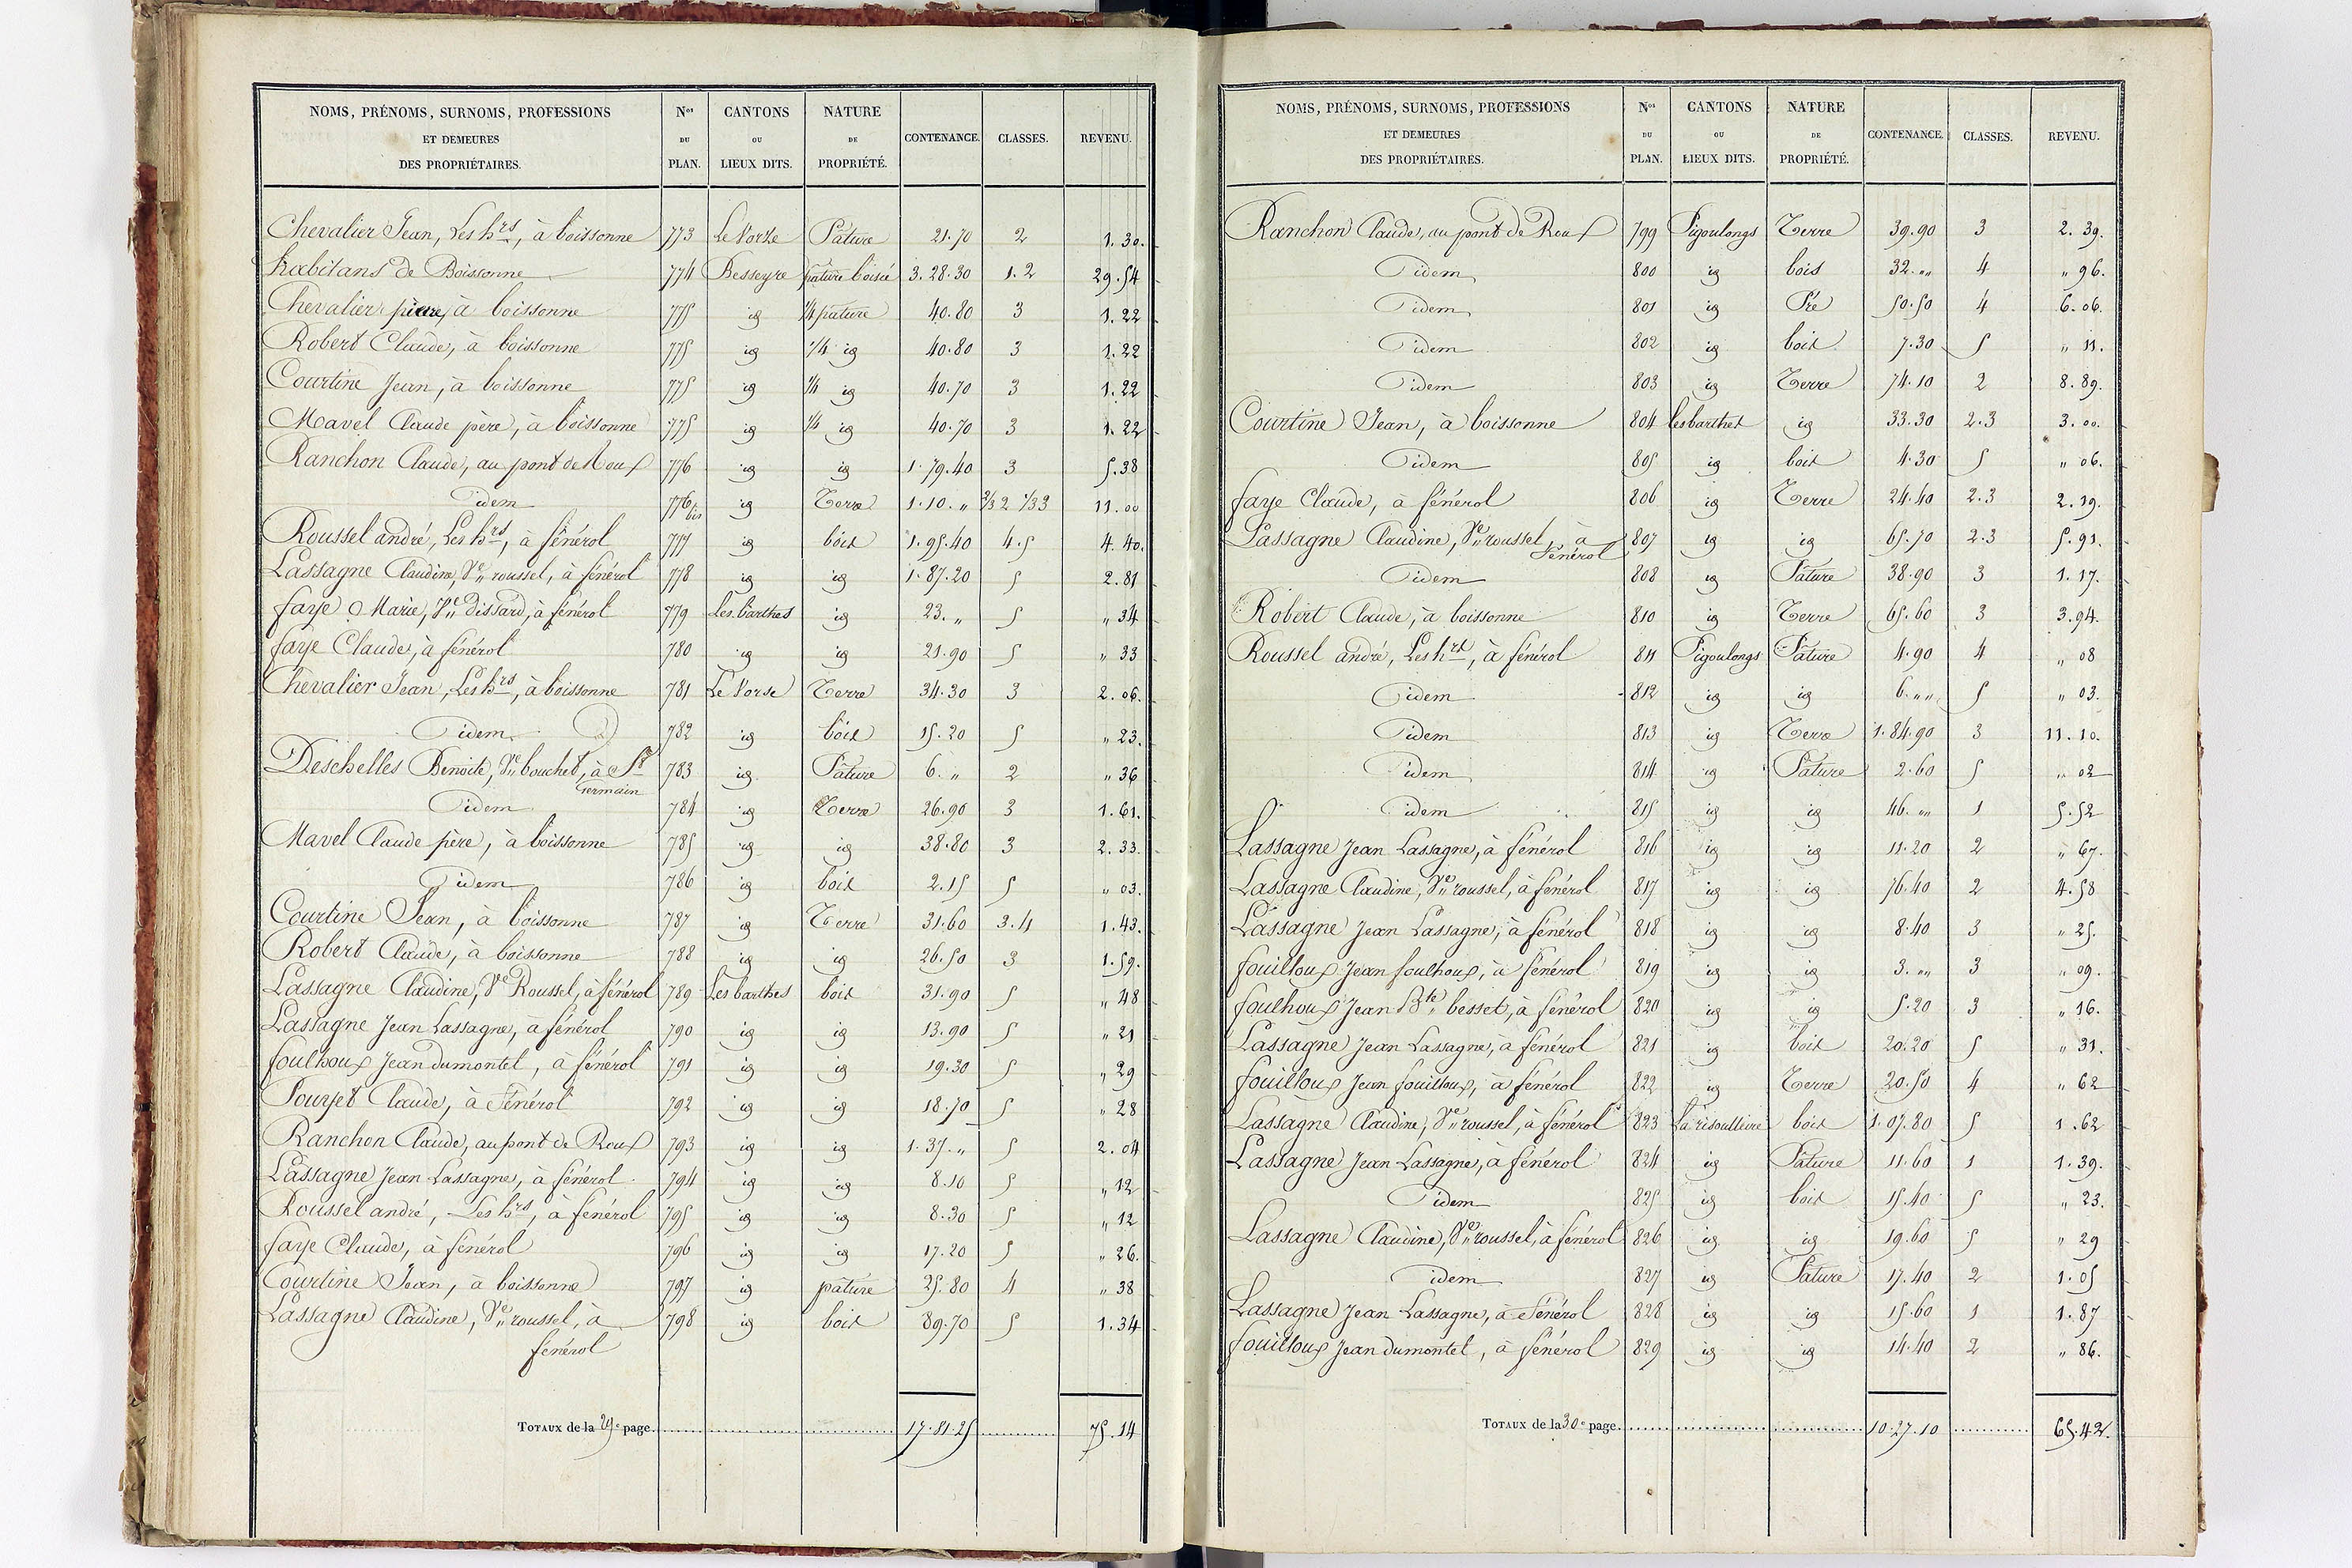 NOMS, PRÉNOMS, SURNOMS, PROFESSIONS ET DEMEURES DES PROPRIÉTAIRES. Nos DU PLAN. CANTONS OU LIEUX DITS. NATURE DE PROPRIÉTÉ. CONTENANCE. CLASSES. REVENU.
Chevalier Jean, Les hrs, à boissonne 773 Le Vorse Pature 21.70 2 1.30.
habitans de Boissonne 774 Besseyre pature boisée 3.28.30 1.2 29.54
Chevalier pierre, à boissonne 775 id 1/4 pature 40.80 3 1.22
Robert Claude, à boissonne 775 id 1/4 id 40.80 3 1.22
Courtine Jean, à boissonne 775 id 1/4 id 40.70 3 1.22
Mavel Claude père, à boissonne 775 id 1/4 id 40.70 3 1.22
Ranchon Claude, au pont de Roux 776 id id 1.79.40 3 5.38
idem 776 bis id Terre 1.10. „ 2/3 2 1/3 3 11.00
Roussel andré, Les hrs, à fénérol 777 id bois 1.95.40 4.5 4.40.
Lassagne Claudine, Ve roussel, à fénérol 778 id id 1.87.20 5 2.81
faye Marie, Ve dissard, à fénérol 779 Les barthes id 23. „ 5 „ 34
faye Claude, à fénérol 780 id id 21.90 5 „ 33
Chevalier Jean, Les hrs, à boissonne 781 Le Vorse Terre 34.30 3 2.06.
idem 782 id bois 15.20 5 „ 23.
Deschelles Benoite, Ve bouchet, à St Germain 783 id Pature 6. „ 2 „ 36
idem 784 id Terre 26.90 3 1.61.
Mavel Claude père, à boissonne 785 id id 38.80 3 2.33.
idem 786 id bois 2.15 5 „ 03.
Courtine Jean, à boissonne 787 id Terre 31.60 3.4 1.43.
Robert Claude, à boissonne 788 id id 26.50 3 1.59.
Lassagne Claudine, Ve Roussel, à fénérol 789 Les barthes bois 31.90 5 „ 48
Lassagne Jean Lassagne, à fénérol 790 id id 13.90 5 „ 21
foulhoux Jean dumontel, à fénérol 791 id id 19.30 5 „ 29
Pouyet Claude, à Fénérol 792 id id 18.70 5 „ 28
Ranchon Claude, au pont de Roux 793 id id 1.37. „ 5 2.04
Lassagne Jean Lassagne, à fénérol 794 id id 8.10 5 „ 12
Roussel andré, Les hrs, à fénérol 795 id id 8.30 5 „ 12
faye Claude, à fénérol 796 id id 17.20 5 „ 26.
Courtine Jean, à boissonne 797 id pature 25.80 4 „ 38
Lassagne Claudine, Ve roussel, à fénérol 798 id bois 89.70 5 1.34
TOTAUX de la 29e page 17.81.25 75.14
NOMS, PRÉNOMS, SURNOMS, PROFESSIONS ET DEMEURES DES PROPRIÉTAIRES. Nos DU PLAN. CANTONS OU LIEUX DITS. NATURE DE PROPRIÉTÉ. CONTENANCE. CLASSES. REVENU.
Ranchon Claude, au pont de Roux 799 Pigoulongs Terre 39.90 3 2.39.
idem 800 id bois 32. „„ 4 „ 96.
idem 801 id Pré 50.50 4 6.06.
idem 802 id bois 7.30 5 „ 11.
idem 803 id Terre 74.10 2 8.89.
Courtine Jean, à boissonne 804 les barthes id 33.30 2.3 3.00.
idem 805 id bois 4.30 5 „ 06.
faye Claude, à fénérol 806 id Terre 24.40 2.3 2.19.
Lassagne Claudine, Ve roussel, à Fénérol 807 id id 65.70 2.3 5.91.
idem 808 id Pature 38.90 3 1.17.
Robert Claude, à boissonne 810 id Terre 65.60 3 3.94.
Roussel andré, Les hrs, à fénérol 811 Pigoulongs Pature 4.90 4 „ 08
idem 812 id id 6. „„ 5 „ 03.
idem 813 id Terre 1.84.90 3 11.10.
idem 814 id Pature 2.60 5 „ 02
idem 815 id id 46. „„ 1 5.52
Lassagne Jean Lassagne, à fénérol 816 id id 11.20 2 „ 67.
Lassagne Claudine, Ve roussel, à fénérol 817 id id 76.40 2 4.58
Lassagne Jean Lassagne, à fénérol 818 id id 8.40 3 „ 25.
fouilloux Jean foulhoux, à fénérol 819 id id 3. „„ 3 „ 09.
foulhoux Jean Bte besset, à fénérol 820 id id 5.20 3 „ 16.
Lassagne Jean Lassagne, à fénérol 821 id bois 20.20 5 „ 31.
fouilloux Jean fouilloux, à fénérol 822 id Terre 20.50 4 „ 62
Lassagne Claudine, Ve roussel, à fénérol 823 La risoulliere bois 1.07.80 5 1.62
Lassagne Jean Lassagne, à fénérol 824 id Pature 11.60 1 1.39.
idem 825 id bois 15.40 5 „ 23.
Lassagne Claudine, Ve roussel, à fénérol 826 id id 19.60 5 „ 29
idem 827 id Pature 17.40 2 1.05
Lassagne Jean Lassagne, à Fénérol 828 id id 15.60 1 1.87
fouilloux Jean dumontel, à fénérol 829 id id 14.40 2 „ 86.
TOTAUX de la 30e page 10.27.10 65.42.